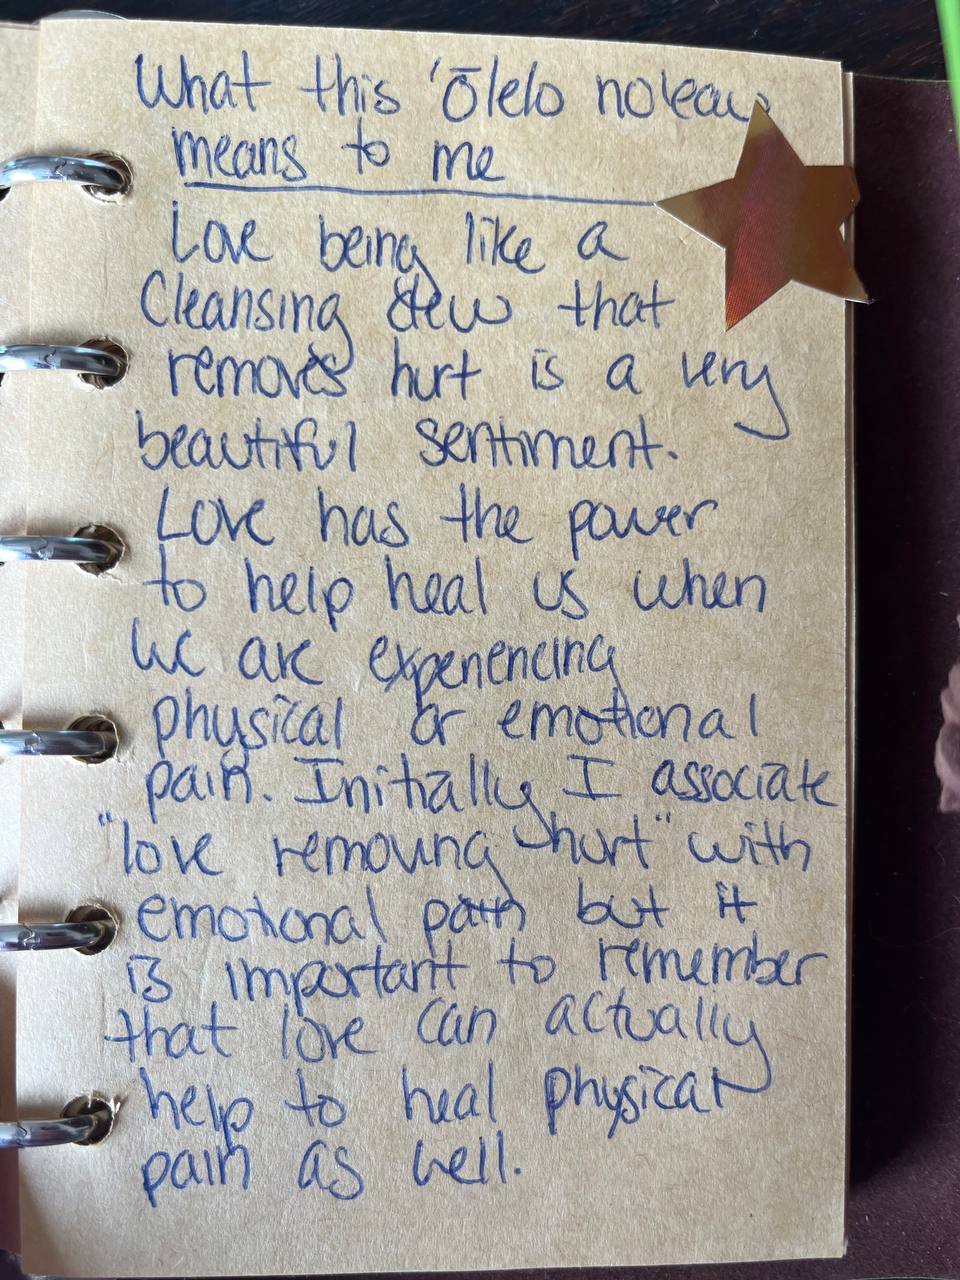 What this 'ōlelo no'eau
means to me
Love being like a
Cleansing dew that
removes hurt is a very
beautiful sentiment.
Love has the power
to help heal us when
we are experiencing
physical or emotional
pain. Initially I associate
"love removing hurt" with
emotional pain but it
is important to remember
that love can actually
help to heal physical
pain as well.